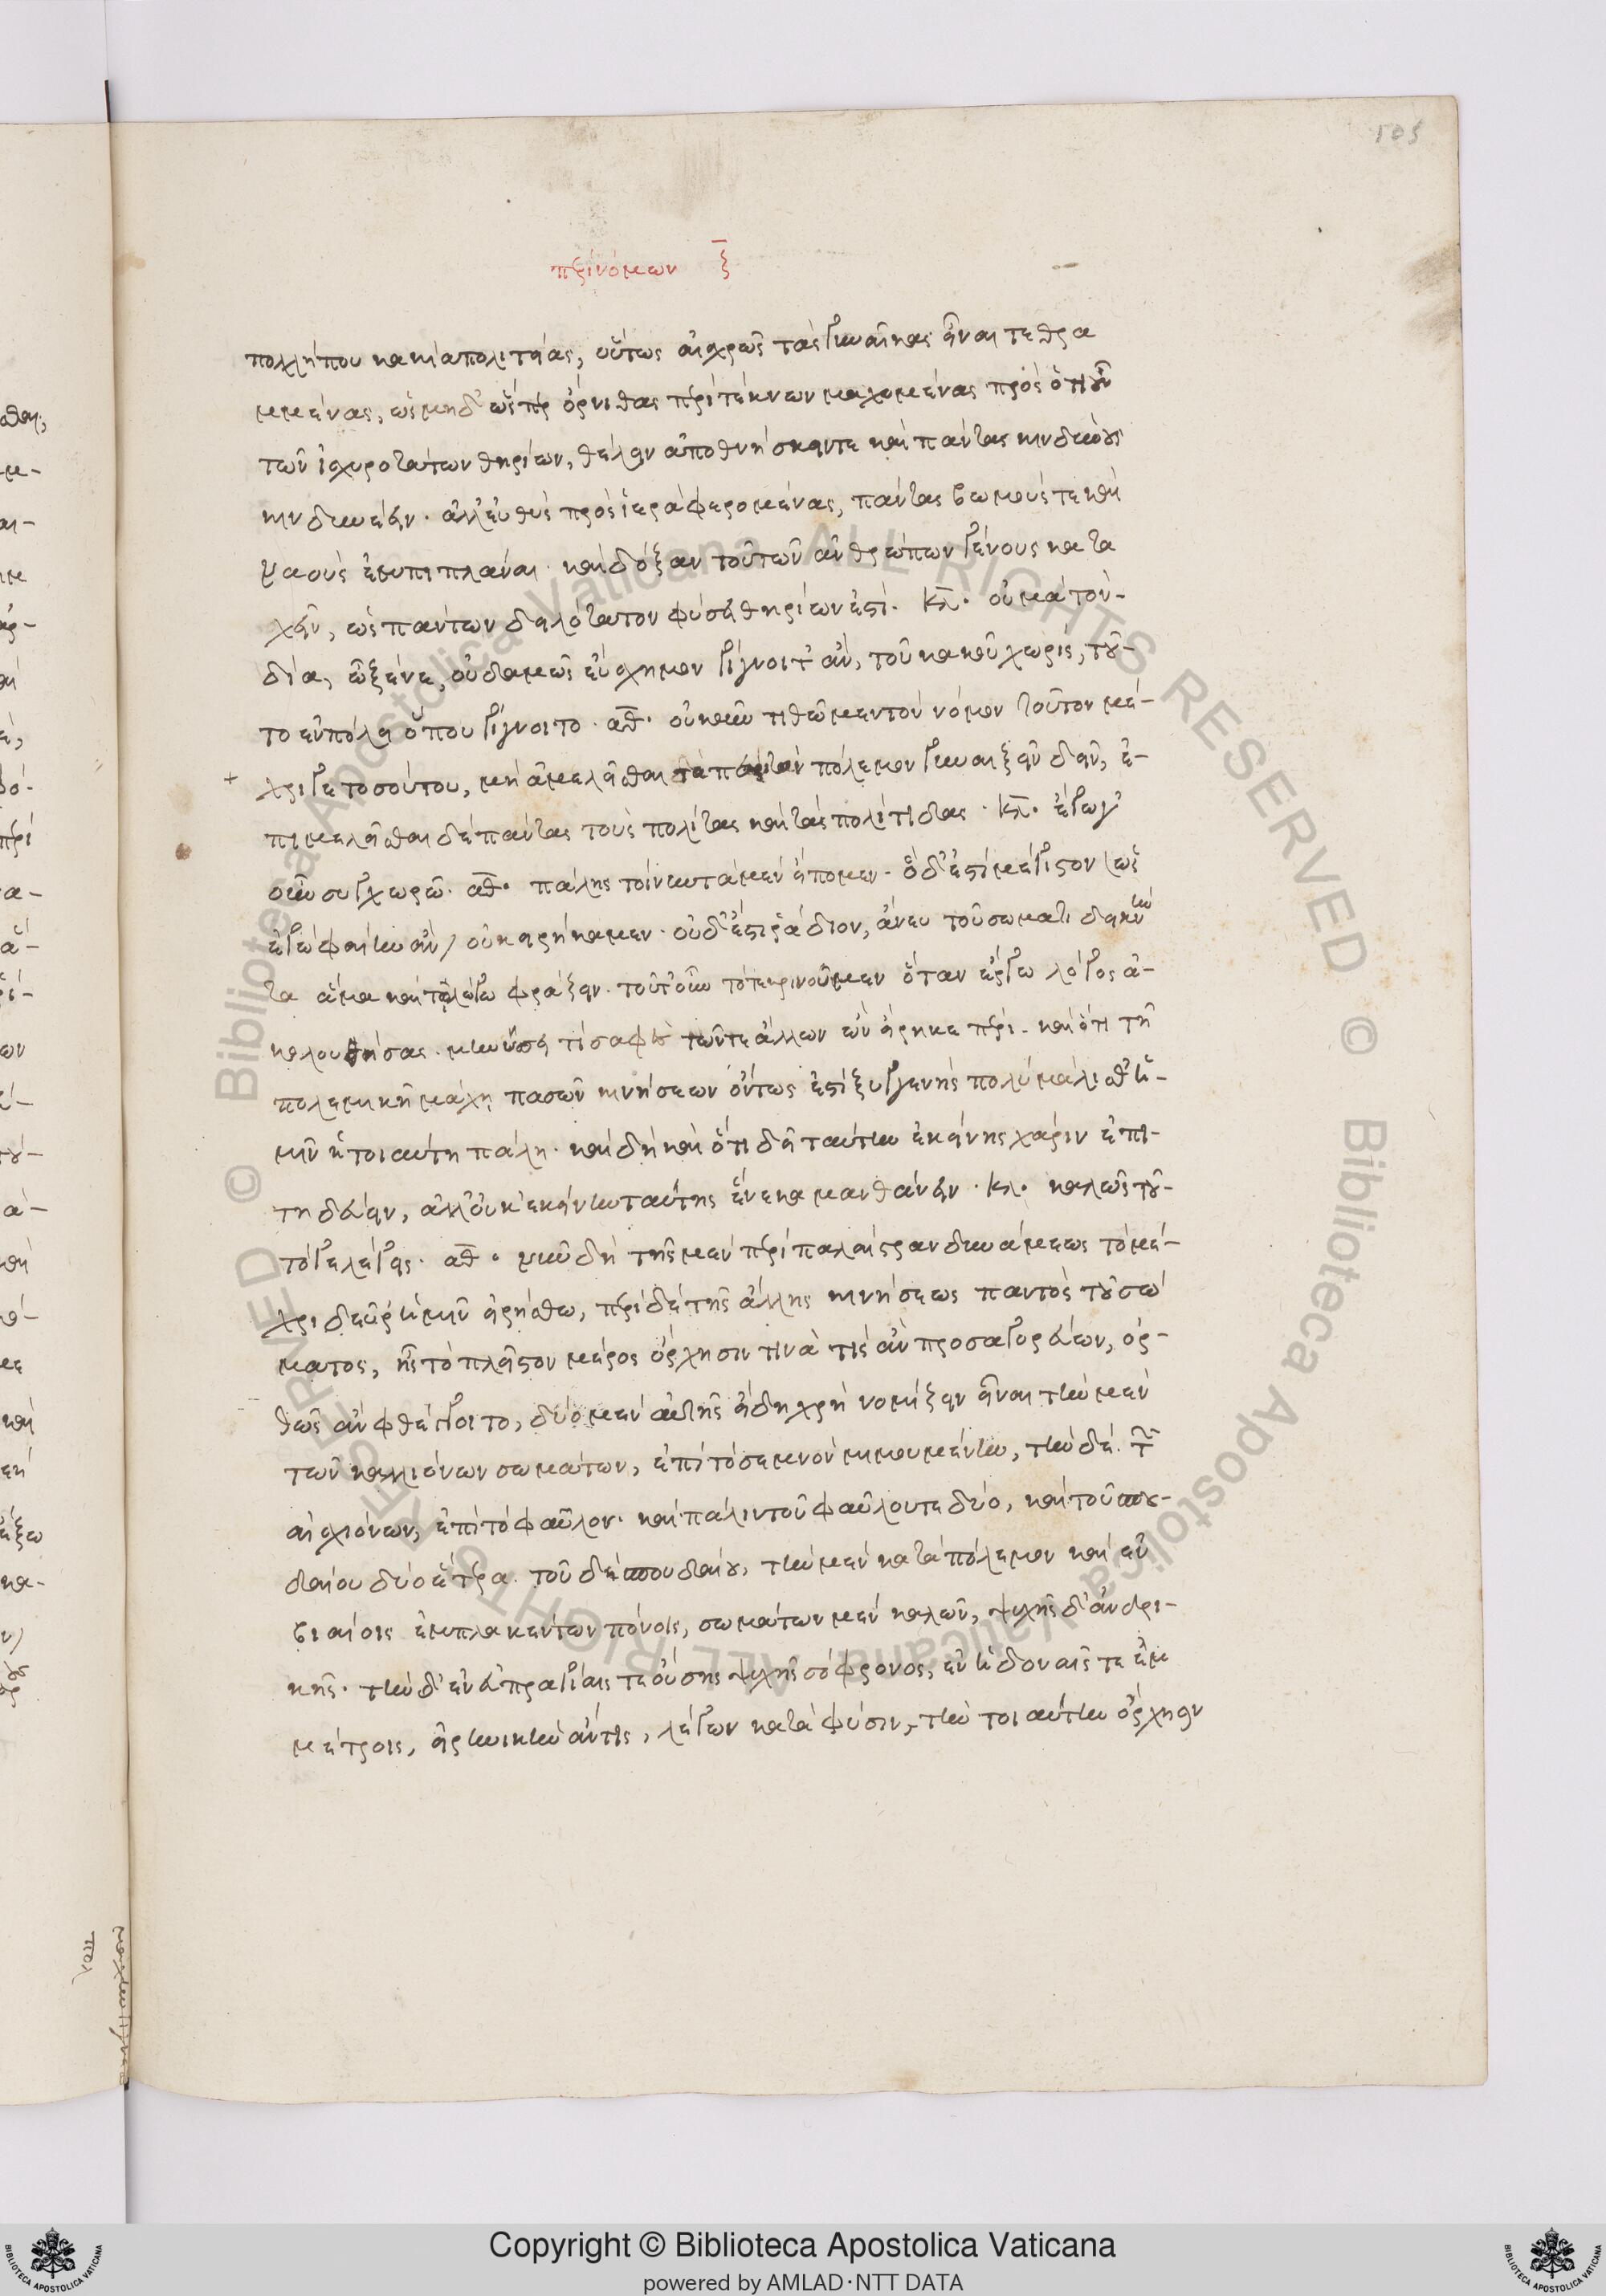 105
περὶ νόμων ζ
πολλή που κακία πολιτείας, οὕτως αἰσχρῶς τὰς γυναῖκας εἶναι τεθρα
μμένας, ὡς μηδ' ὥσπερ ὄρνιθας περὶ τέκνων μαχομένας πρὸς ὁτιοῦν
τῶν ἰσχυροτάτων θηρίων, θέλειν ἀποθνήσκειν τε καὶ πάντας κινδύνους
κινδυνεύειν. ἀλλ' εὐθὺς πρὸς ἱερὰ φερομένας, πάντας βωμούς τε καὶ
ναοὺς ἐμπιπλάναι. καὶ δόξαν τοῦ τῶν ἀνθρώπων γένους κατα
χεῖν, ὡς πάντων δειλότατον φύσει θηρίων ἐστί. κλ. οὐ μὰ τὸν
δία, ὦ ξένε, οὐδαμῶς εὔσχημον γίγνοιτ' ἄν, τοῦ κακοῦ χωρίς, τοῦ-
το ἐν πόλει ὅπου γίγνοιτο. αθ. οὐκοῦν τιθῶμεν τὸν νόμον τοῦτον μέ-
χρι γε τοσούτου, μὴ ἀμελεῖσθαι τὰ περὶ τὸν πόλεμον γυναιξὶν δεῖν, ἐ-
πιμελεῖσθαι δὲ πάντας τοὺς πολίτας καὶ τὰς πολίτιδας. κλ. ἐγὼ γ'
οὖν συγχωρῶ. αθ. πάλης τοίνυν τὰ μὲν εἴπομεν. ὃ δ' ἐστὶ μέγιστον ὡς
ἐγὼ φαίην ἂν, οὐκ εἰρήκαμεν. οὐδ' ἔστι ῥάδιον, ἄνευ τοῦ σώματι δεικνύν
τα ἅμα καὶ τῷ λόγῳ φράζειν. τοῦτ' οὖν τότε κρινοῦμεν ὅταν ἔργῳ λόγος ἀ-
κολουθήσας. μηνύσῃ τι σαφὲς τῶν τε ἄλλων ὧν εἴρηκε πέρι. καὶ ὅτι τῇ
πολεμικῇ μάχῃ πασῶν κινήσεων ὄντως ἐστὶ ξυγγενὴς πολὺ μάλισθ' ἡ-
μῖν ἡ τοιαύτη πάλη. καὶ δὴ καὶ ὅτι δεῖ ταύτην ἐκείνης χάριν ἐπι-
τηδεύειν, ἀλλ' οὐκ ἐκείνην ταύτης ἕνεκα μανθάνειν. κλ. καλῶς τοῦ-
τό γε λέγεις. αθ. νῦν δὴ τῆς μὲν περὶ παλαίστραν δυνάμεως τὸ μέ-
χρι δεῦρ' ἡμῖν εἰρήσθω, περὶ δὲ τῆς ἄλλης κινήσεως παντὸς τοῦ σώ
ματος, ἧς τὸ πλεῖστον μέρος ὄρχησίν τινά τις ἂν προσαγορεύων, ὀρ-
θῶς ἂν φθέγγοιτο, δύο μὲν αὐτῆς εἴδη χρὴ νομίζειν εἶναι τὴν μὲν
τῶν καλλιόνων σωμάτων, ἐπὶ τὸ σεμνὸν μιμουμένην, τὴν δὲ. τῶν
αἰσχιόνων, ἐπὶ τὸ φαῦλον. καὶ πάλιν τοῦ φαύλου τε δύο, καὶ τοῦ σπου-
δαίου δύο ἕτερα. τοῦ δὲ σπουδαίου, τὴν μὲν κατὰ πόλεμον καὶ ἐν
βιαίοις ἐμπλακέντων πόνοις, σωμάτων μὲν καλῶν, ψυχῆς δ' ἀνδρι-
κῆς. τὴν δ' ἐν εὐπραγίαις τε οὔσης ψυχῆς σώφρονος, ἐν ἡδοναῖς τε ἐμ
μέτροις, εἰρηνικὴν ἄν τις, λέγων κατὰ φύσιν, τὴν τοιαύτην ὄρχησιν
Copyright © Biblioteca Apostolica Vaticana
powered by AMLAD·NTT DATA